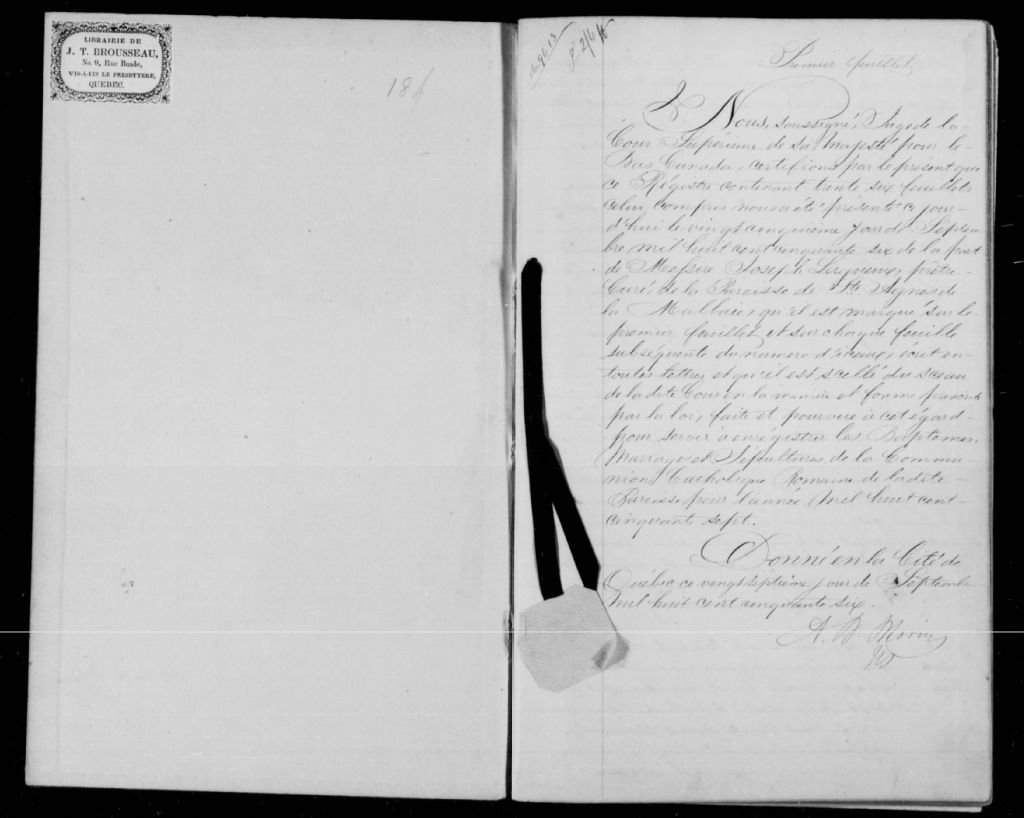 LIBRAIRIE DE
J. T. BROUSSEAU,
No. 9, Rue Buade,
VIS-A-VIS LE PRESBYTERE,
QUEBEC.
Premier feuillet
Nous, soussigné, Juge de la
Cour Supérieure de sa Majesté pour le
Bas Canada, certifions par le présent que
ce Régistre contenant trente six feuillets
celui compris nous a été présenté ce jour-
d'hui le vingt cinquième jour de Septem
bre mil huit cent cinquante six de la part
de Messire Joseph prêtre
Curé, de la Paroisse de Ste Agnes de
la Malbaie, qu'il est marqué sur le
premier feuillet et sur chaque feuille
subséquente du numero d'iceux, écrit en
toutes lettres et qu'il est scellé du sceau
de la dite Cour en la manière et forme prescrite
par la loi, faite et pourvue à cet égard
pour servir à enrégistrer les Baptemes,
Marriages et Sépultures de la Commu
nion Catholique Romaine de la dite
Paroisse pour l'année mil huit cent
cinquante sept.
Donné en la Cité de
Québec ce vingt septième jour de Septembre
mil huit cent cinquante six.
A. N. Morin